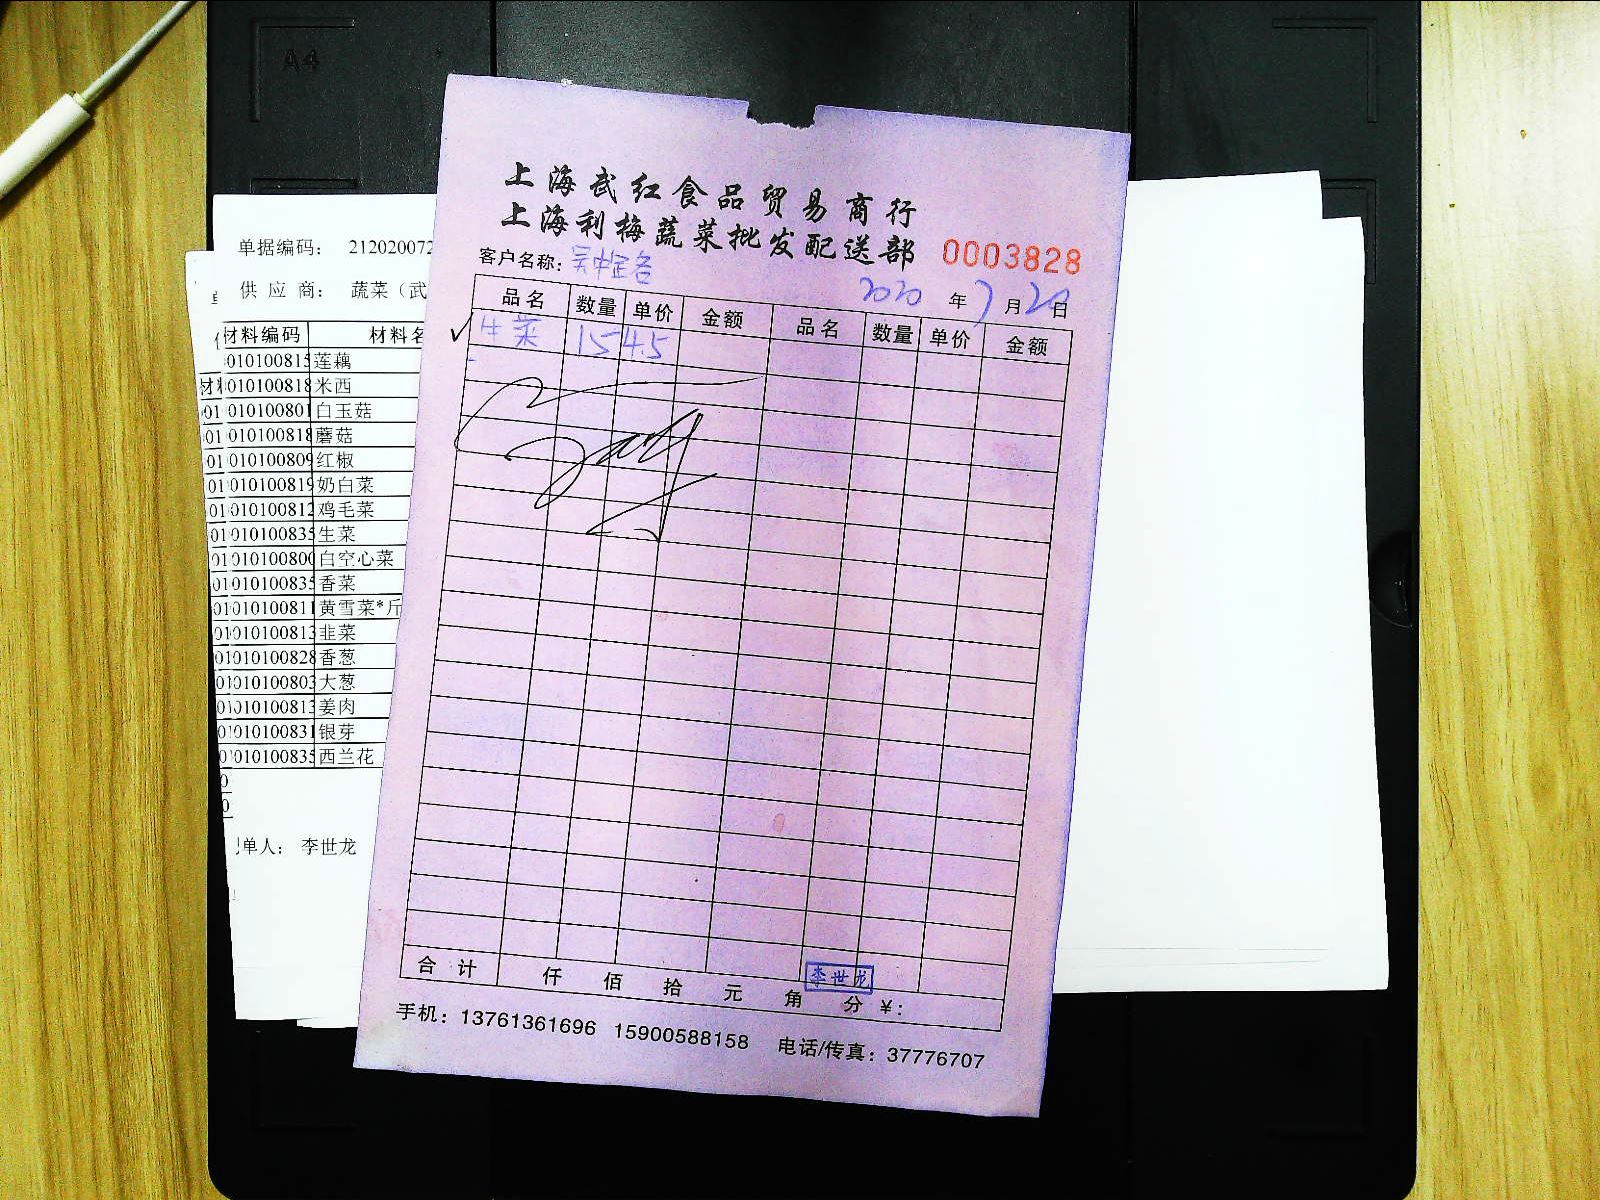 A4
上海武红食品贸易商行
上海利梅蔬菜批发配送部 0003828
客户名称：
2020 年 7 月 20 日
品名 数量 单价 金额 品名 数量 单价 金额
✓ 生菜 15 4.5
合计 仟 佰 拾 元 角 分 ¥：
李世龙
手机：13761361696 15900588158 电话/传真：37776707
单据编码： 212020072
供应商： 蔬菜（武
材料编码 材料名
010100815 莲藕
010100818 米西
010100801 白玉菇
010100818 蘑菇
010100809 红椒
010100819 奶白菜
010100812 鸡毛菜
010100835 生菜
010100800 白空心菜
010100835 香菜
010100811 黄雪菜*斤
010100813 韭菜
010100828 香葱
010100803 大葱
010100813 姜肉
010100831 银芽
010100835 西兰花
单人： 李世龙